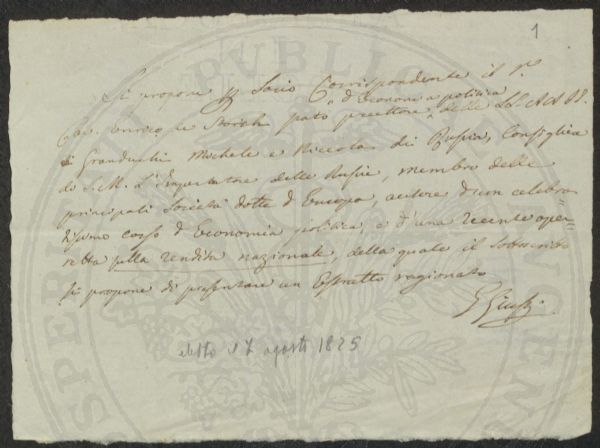 1
Si propone p Socio Corrispondente il Sr.
Cav. Enrico de Storch
d'Economia politica
stato precettore delle LL. AA. II.
i Granduchi Michele e Niccola di Russia, Consigliere
di S. M. L'Imperatore delle Russie, membro delle
principali Società dotte d'Europa, autore d'un celebra
tissimo corso d'Economia politica, e d'una recente oper=
retta sulla rendita nazionale, della quale il sottoscritto
si propone di presentare un Estratto ragionato
eletto il 7 agosto 1825